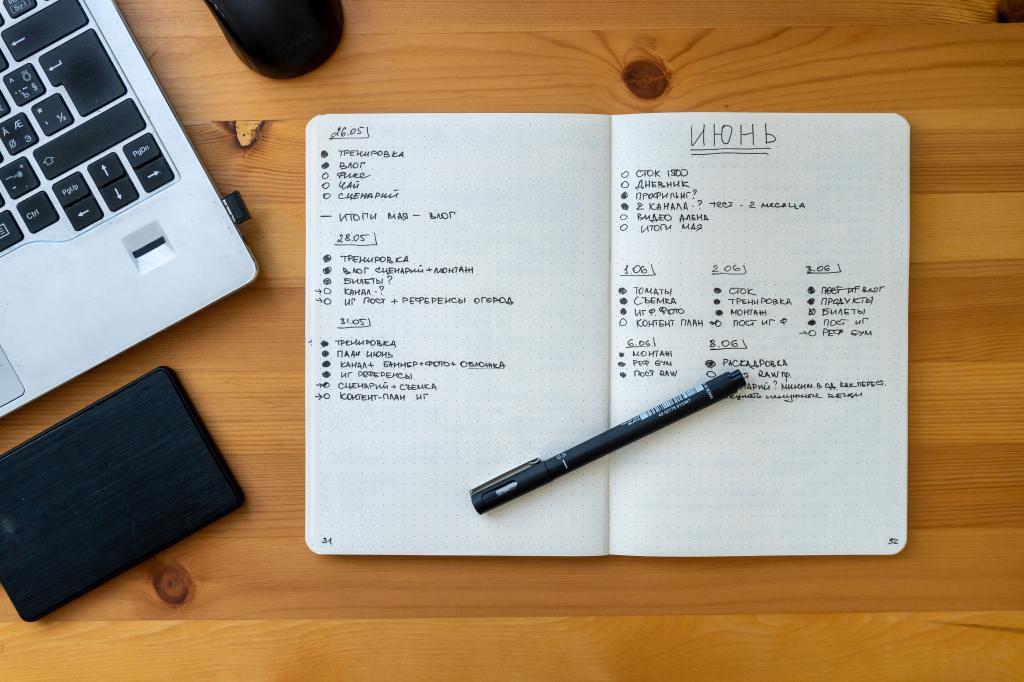 26.05
ТРЕНИРОВКА
ВЛОГ
ФИКС
ЧАЙ
СЦЕНАРИЙ
— ИТОГИ МАЯ — ВЛОГ
28.05
ТРЕНИРОВКА
ВЛОГ СЦЕНАРИЙ + МОНТАЖ
БИЛЕТЫ?
КАНАЛ-?
ИГ ПОСТ + РЕФЕРЕНСЫ ОГОРОД
31.05
ТРЕНИРОВКА
ПЛАН ИЮНЬ
КАНАЛ + БАННЕР + ФОТО + ОБЛОЖКА
ИГ РЕФЕРЕНСЫ
СЦЕНАРИЙ + СЪЕМКА
КОНТЕНТ-ПЛАН ИГ
31
ИЮНЬ
СТОК 1500
ДНЕВНИК
ПРОФИЛИНГ?
2 КАНАЛА-? ТЕСТ - 2 МЕСЯЦА
ВИДЕО АЛЕНА
ИТОГИ МАЯ
1.06
ТОМАТЫ
СЪЕМКА
ИГ Ф. ФОТО
КОНТЕНТ ПЛАН
2.06
СТОК
ТРЕНИРОВКА
МОНТАЖ
ПОСТ ИГ Ф
3.06
ПОСТ ИГ ВЛОГ
ПРОДУКТЫ
БИЛЕТЫ
ПОСТ ИГ
РЕФ БУМ
6.06
МОНТАЖ
РЕФ БУМ
ПОСТ RAW
8.06
РАСКАДРОВКА
RAW ПР.
32
PgUp
PgDn
Ctrl
0.5